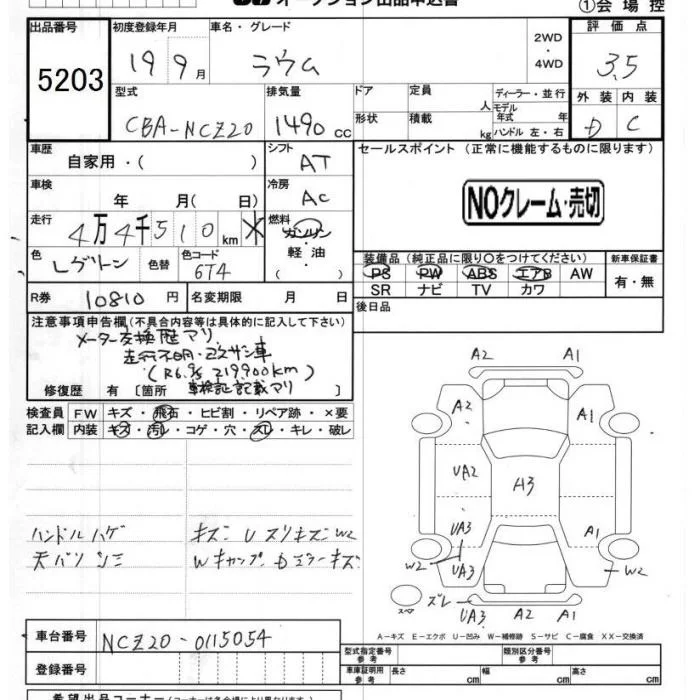 オークション出品申込書
①会場控
出品番号 5203
初度登録年月 19 9月
車名・グレード ラウム
2WD
・
4WD
評価点 3.5
型式 CBA-NCZ20
排気量 1490 CC
ドア
定員 人
ディーラー・並行
モデル年式 年
形状
積載 kg
ハンドル 左・右
外装 D
内装 C
車歴 自家用・( )
シフト AT
セールスポイント (正常に機能するものに限ります)
NOクレーム・売切
車検 年 月( 日)
冷房 AC
走行 4万4千510km
燃料 ガソリン
軽・油
色 Lグリーン
色替
色コード 6T4
装備品 (純正品に限り○をつけてください)
新車保証書
PS PW ABS エアB AW
SR ナビ TV カワ
有・無
R券 10810 円
名変期限 月 日
後日品
注意事項申告欄(不具合内容等は具体的に記入して下さい)
メーター交換歴アリ
走行不明・
(R6.9/5 219900km)
車検証記載アリ
修復歴 有 [箇所 ]無
検査員 FW キズ・飛石・ヒビ割・リペア跡・×要
記入欄 内装 キズ・汚レ・コゲ・穴・スレ・キレ・破レ
ハンドルハゲ
キズ U スリキズ W2
天バリシミ
Wキャップ ミラーキズ
A2 A1
A2 A1
UA2 A3
UA3 A1
W2 UA3 W2
スペア ズレ UA3 A2 A1
A-キズ E-エクボ U-凹み W-補修跡 S-サビ C-腐食 XX-交換済
車台番号 NCZ20-0115054
型式指定番号 参考
類別区分番号 参考
登録番号
車庫証明用 参考
長さ cm
幅 cm
高さ cm
希望出品コーナー